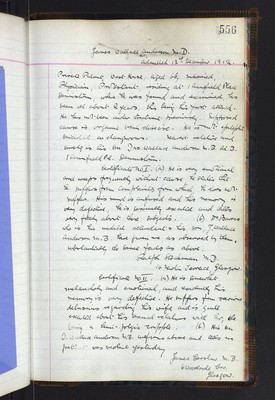 556
James Wallace Anderson M.D.
admitted 13th December 1914.
Private Patient, West House, aged 66, married,
Physician, Protestant, residing at 1 Annfield Place
Dennistoun, where he was found and examined, has
been ill about 2 years, this being his first attack.
He has not been under treatment previously. Supposed
cause is organic brain disease. He is not epileptic
suicidal or dangerous. Nearest relative and
notify is his son Jas Wallace Anderson M.B. Ch.B.
1 Annfield Pl. Dennistoun.
Certificate No I. (a) He is very emotional
and weeps frequently without cause. He states that
he suffers from complaints from which he does not
suffer. His mind is enfeebled and his memory is
very defective. He is sexually excited and talks
very freely about these subjects. (b)
who is his medical attendant & his son J. Wallace
Anderson M.B. have given me as observed by them,
substantially the same facts as above.
Ralph Stockman M.D.
Glasgow.
Certificate No II. (a) He is somewhat
melancholy and emotional and restless, his
memory is very defective. He suffers from various
delusions regarding his wife and is quite
excited about his sexual relations with her, she
being a
Wallace Anderson M.B. informs above and adds his
father was violent yesterday.
James Carslaw M.B.
6 Woodside
Glasgow.